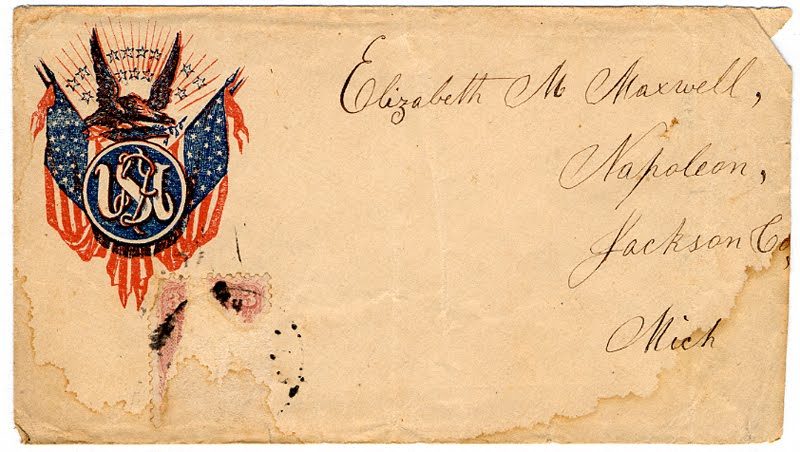 Elizabeth M Maxwell,
Napoleon,
Jackson Co,
Mich
USA